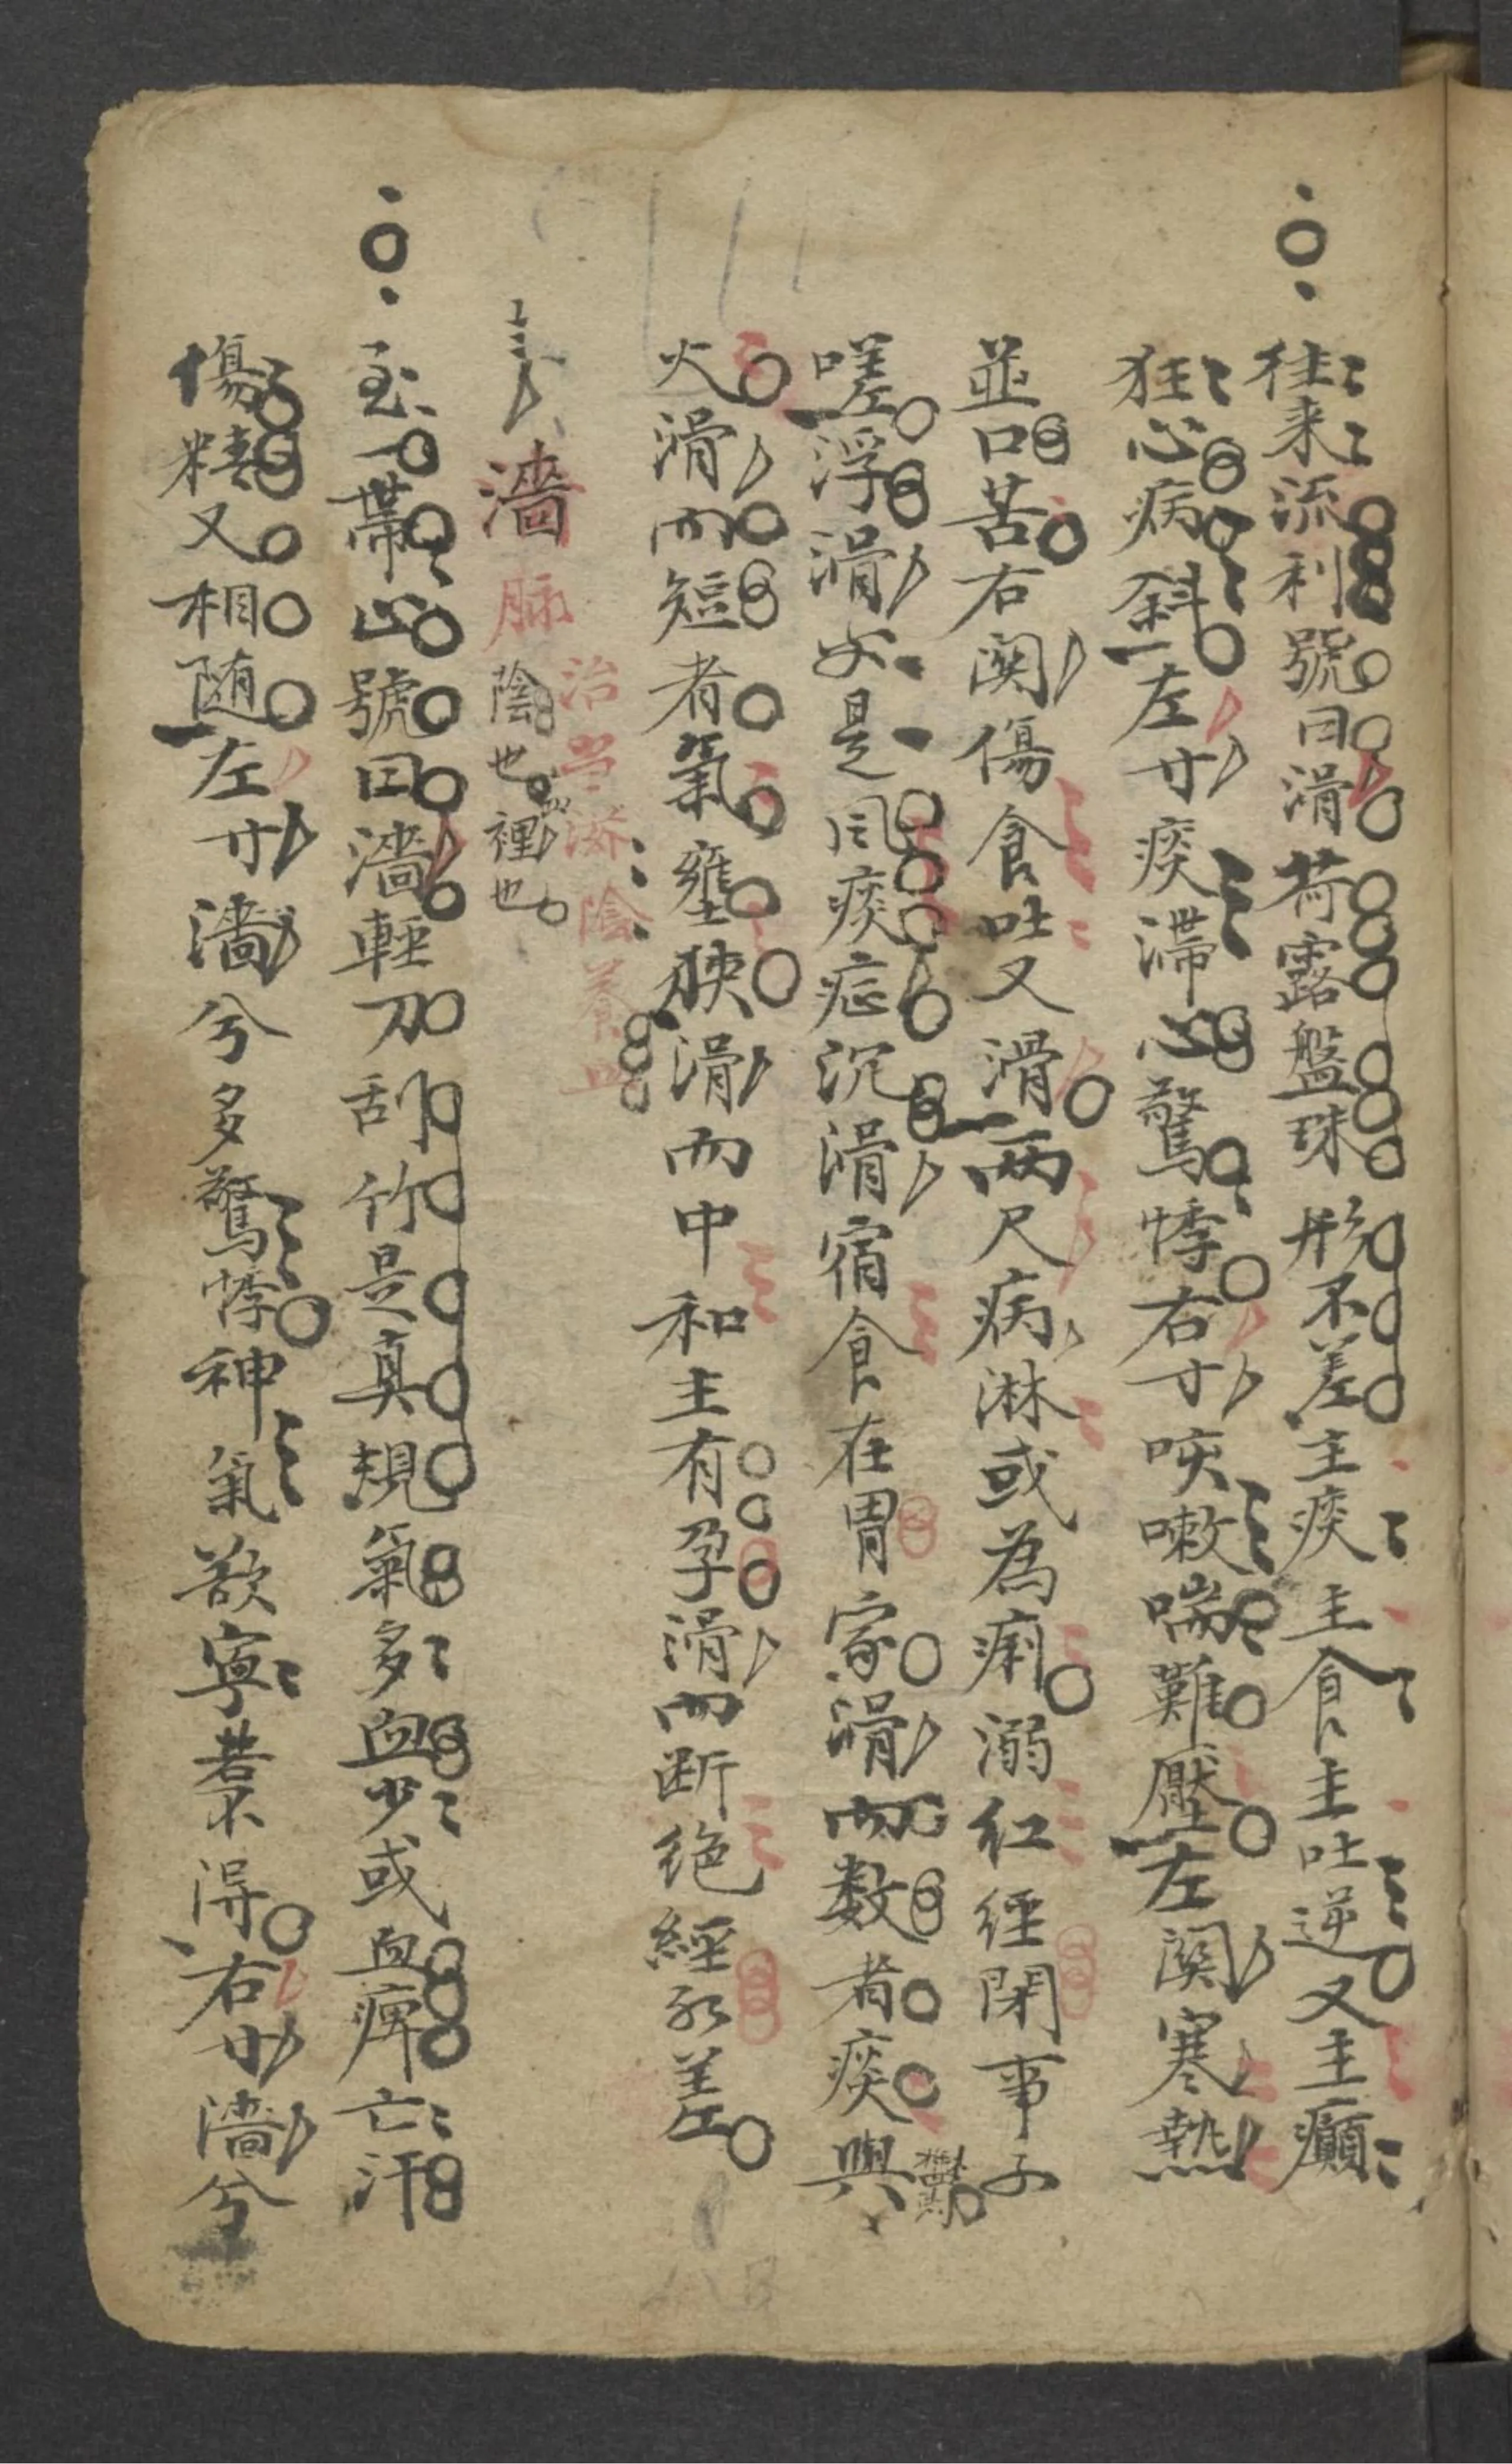 往来流利號曰滑荷露盤珠形不差主痰主食主吐逆又主癲
狂心病斜左寸痰滯心驚悸右寸咳嗽喘難壓左関寒熱
並口苦右関傷食吐又滑兩尺病淋或為痢溺紅經閉事子
嗟浮滑必是風痰症沉滑宿食在胃家滑而数者痰與
火滑而短者氣壅狹滑而中和主有孕滑而断绝經水差
濇脉陰也裡也
治当済陰養血
至一帯止號曰濇輕刀刮竹是真規氣多血少或血痺亡汗
傷精又相随左寸濇兮多驚悸神氣欲寧若不得右寸濇兮